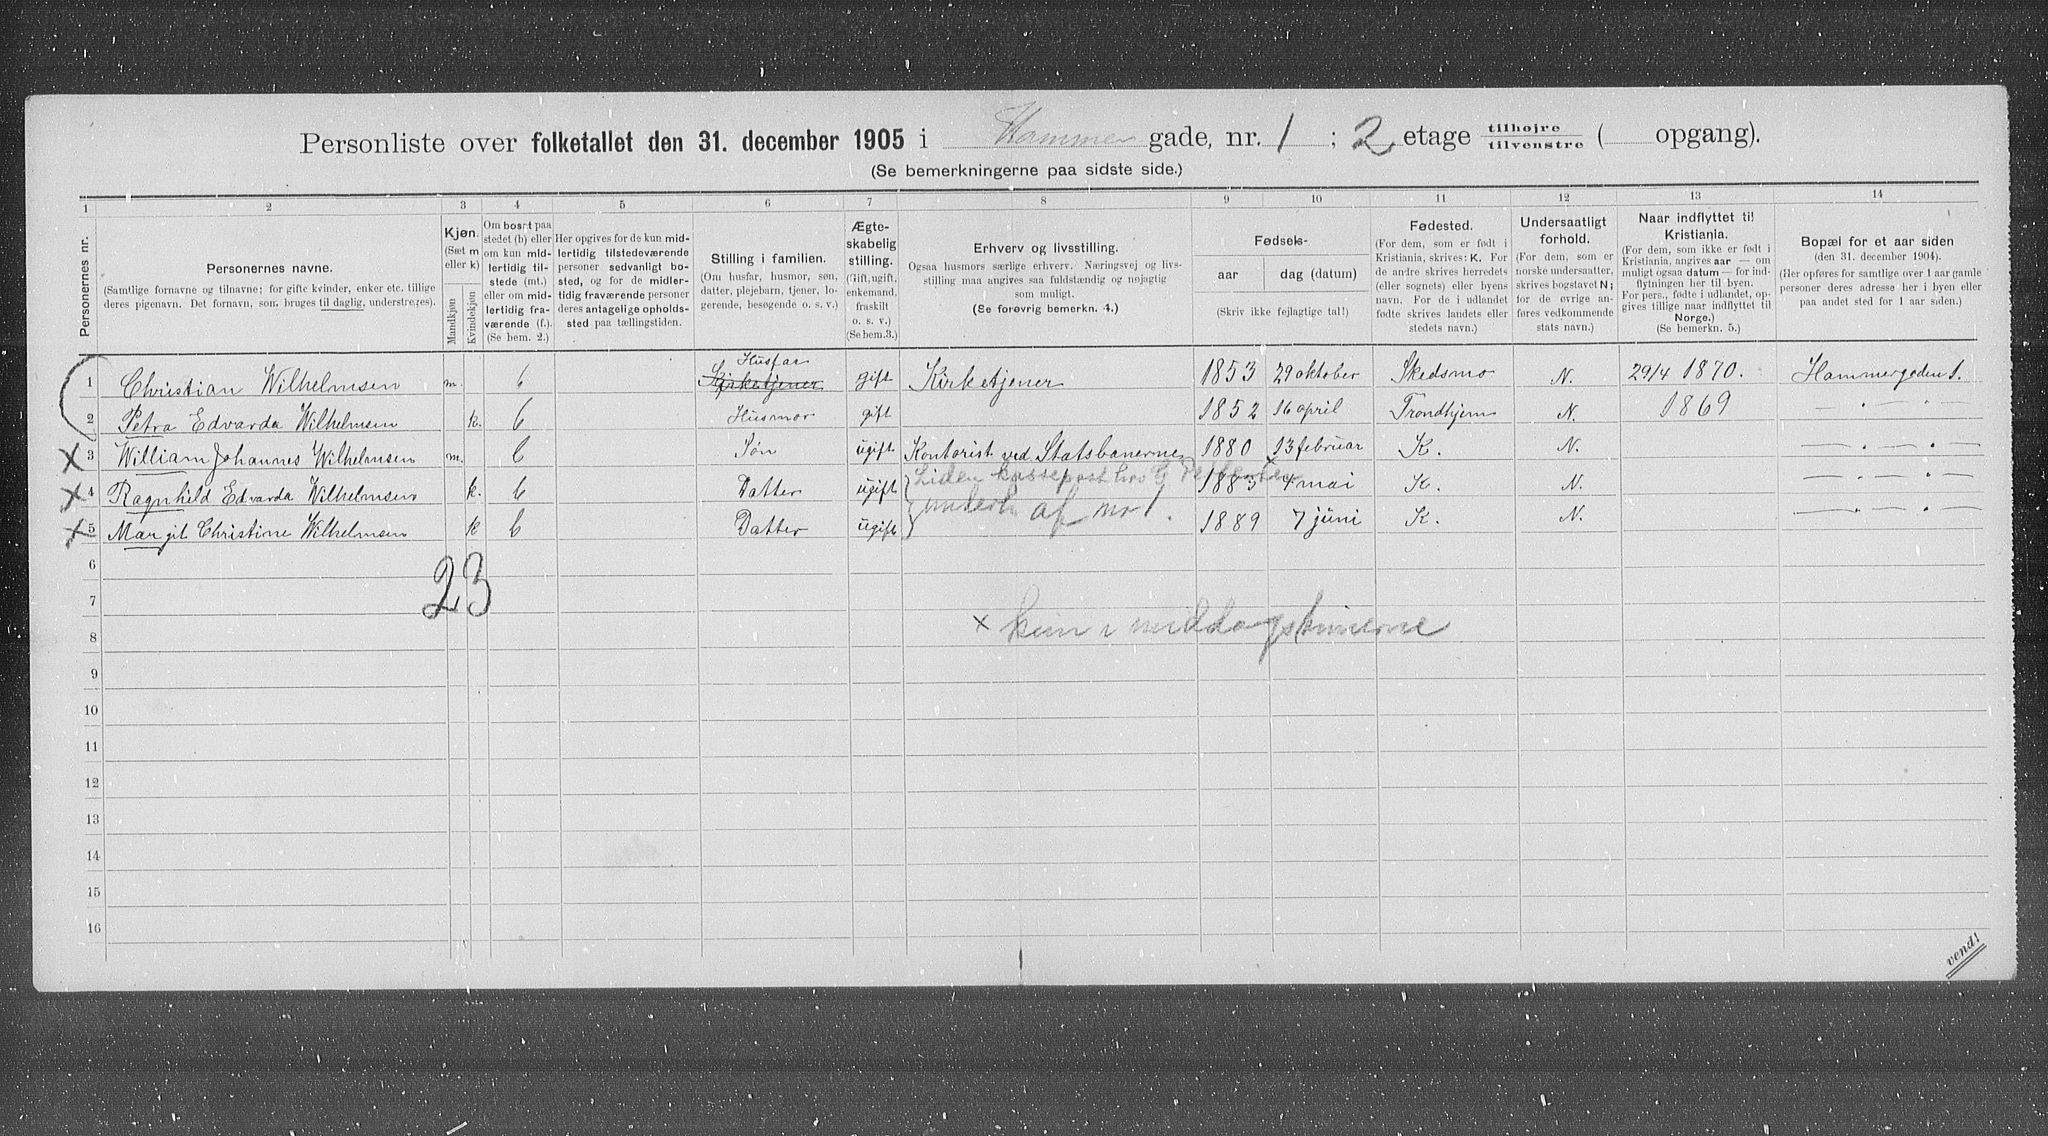 Personliste over folketallet den 31. december 1905 i Hammer gade, nr. 1; 2 etage tilhøjre tilvenstre ( opgang).
(Se bemerkningerne paa sidste side.)
1 2 3 4 5 6 7 8 9 10 11 12 13 14
Personernes nr.
Personernes navne.
(Samtlige fornavne og tilnavne; for gifte kvinder, enker etc. tillige
deres pigenavn. Det fornavn, son. bruges til daglig, understreges).
Kjøn.
(Sæt m
eller k)
Mandkjøn
Kvindekjøn
Om bosat paa
stedet (b) eller
om kun mid-
lertidig til-
stede (mt.)
eller om mid-
lertidig fra-
værende (f.).
(Se bem. 2.)
Her opgives for de kun mid-
lertidig tilstedeværende
personer sedvanlig bo-
sted, og for de midler-
tidig fraværende personer
deres antagelige opholds-
sted paa tællingstiden.
Stilling i familien.
(Om husfar, husmor, søn,
datter, plejebarn, tjener, lo-
gerende, besøgende o. s. v.)
Ægte-
skabelig
stilling.
(Gift, ugift,
enkemand,
fraskilt
o. s. v.)
(Se bem. 3.)
Erhverv og livsstilling.
Ogsaa husmors særlige erhverv. Næringsvej og livs-
stilling maa angives saa fuldstændig og nøjagtig
som muligt.
(Se forøvrig bemerkn. 4.)
Fødsels-
aar dag (datum)
(Skriv ikke fejlagtige tal!)
Fødested.
(For dem, som er født i
Kristiania, skrives: K. For
de andre skrives herredets
(eller sognets) eller byens
navn. For de i udlandet
fødte skrives landets eller
stedets navn.)
Undersaatligt
forhold.
(For dem, som er
norske undersaatter,
skrives bogstavet N;
for de øvrige an-
føres vedkommende
stats navn.)
Naar indflyttet til
Kristiania.
(For dem, som ikke er født i
Kristiania, angives aar — om
muligt ogsaa datum — for ind-
flytningen her til byen.
For pers., fødte i udlandet, op-
gives tillige naar indflyttet til
Norge.)
(Se bemerkn. 5.)
Bopæl for et aar siden
(den 31. december 1904).
(Her opføres for samtlige over 1 aar gamle
personer deres adresse her i byen eller
paa andet sted for 1 aar siden.)
Husfar
1 Christian Wilhelmsen m. b Kirketjener gift Kirketjener 1853 29 oktober Skedsmo N. 29/4 1870. Hammergaden 1.
2 Petra Edvarda Wilhelmsen k. b Husmor gift 1852 16 april Trondhjem N. 1869 — . — . —
X 3 William Johannes Wilhelmsen m. b Søn ugift Kontorist ved Statsbanerne 1880 13 februar K. N. — . — . —
X 4 Ragnhild Edvarda Wilhelmsen k. b Datter ugift Liden kassepost hos G 1883 x 4 mai K. N. — . — . —
underh. af nr 1.
X 5 Margit Christine Wilhelmsen k b Datter ugift 1889 7 juni K. N. — . — . —
6
23
7
x kun i middagstimerne
8
9
10
11
12
13
14
15
16
vend!